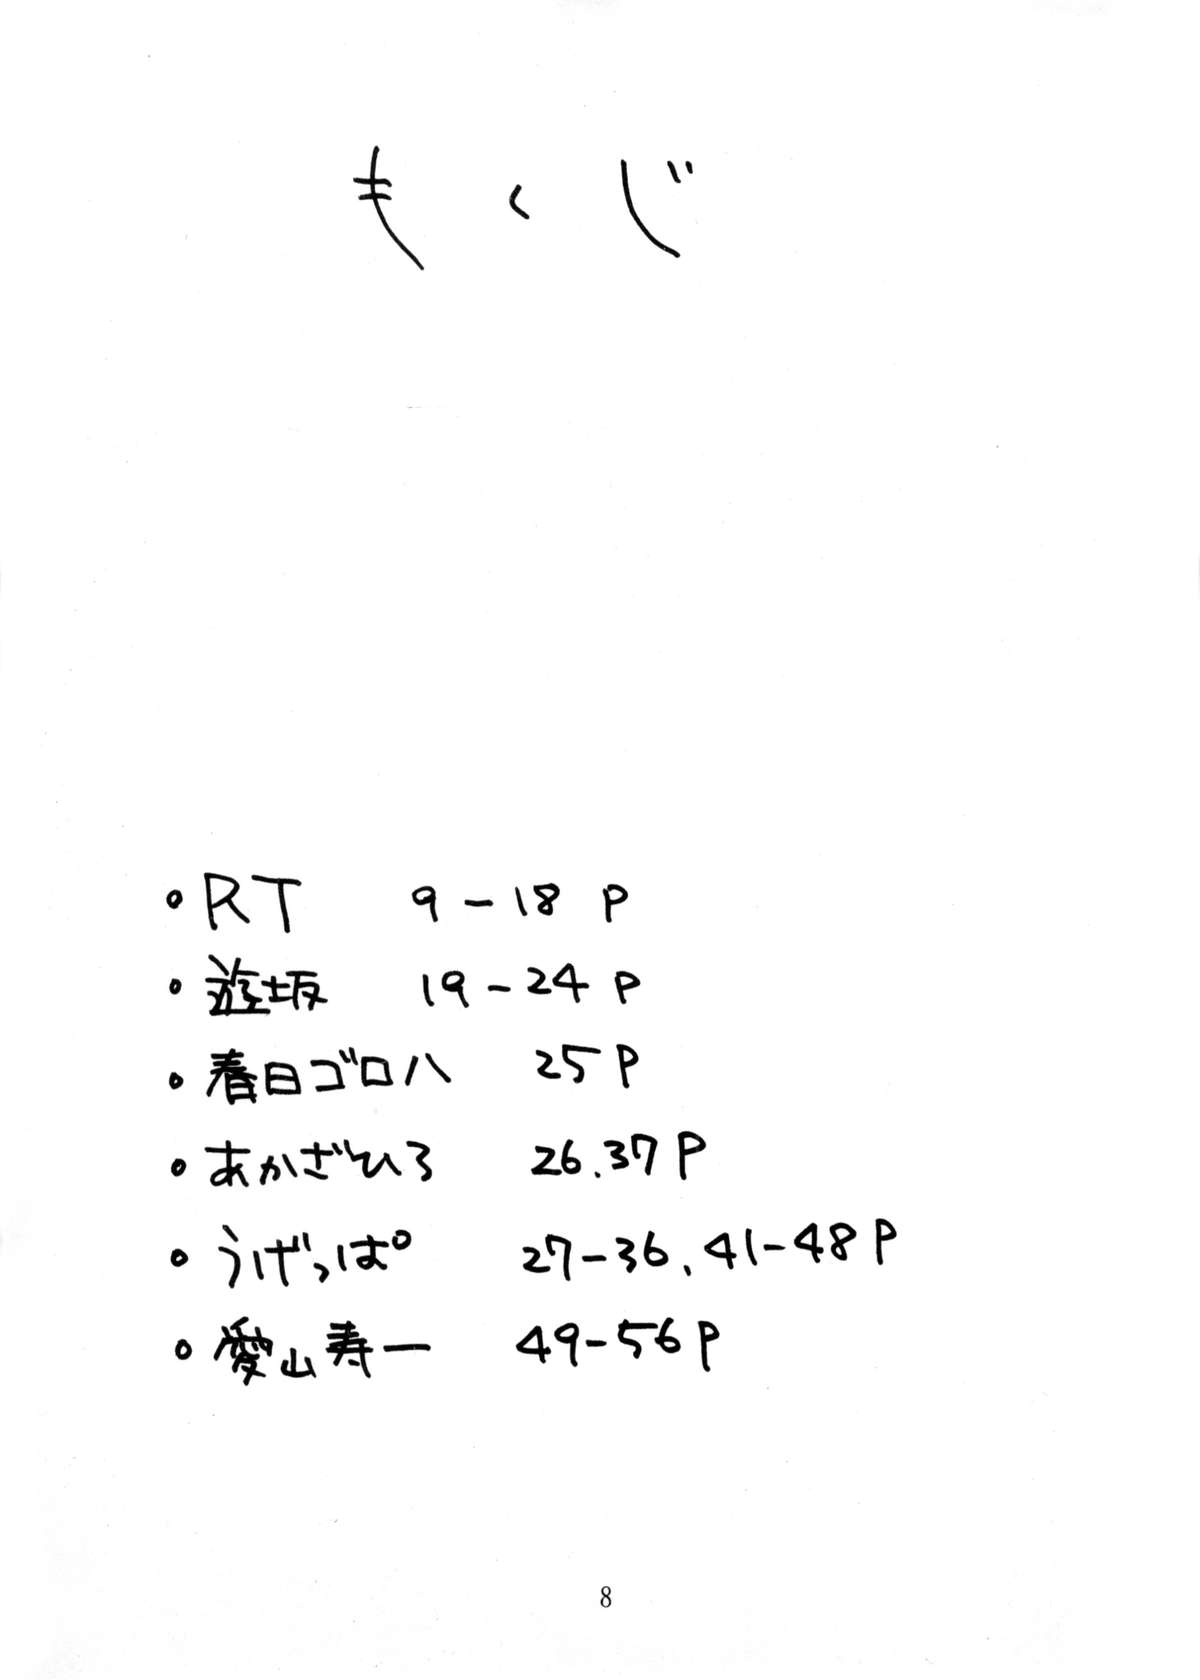 もくじ
・RT 9-18 P
・遊坂 19-24 P
・春日ゴロハ 25 P
・あかざひろ 26.37 P
・うげっぱ 27-36、41-48 P
・愛山寿一 49-56 P
8